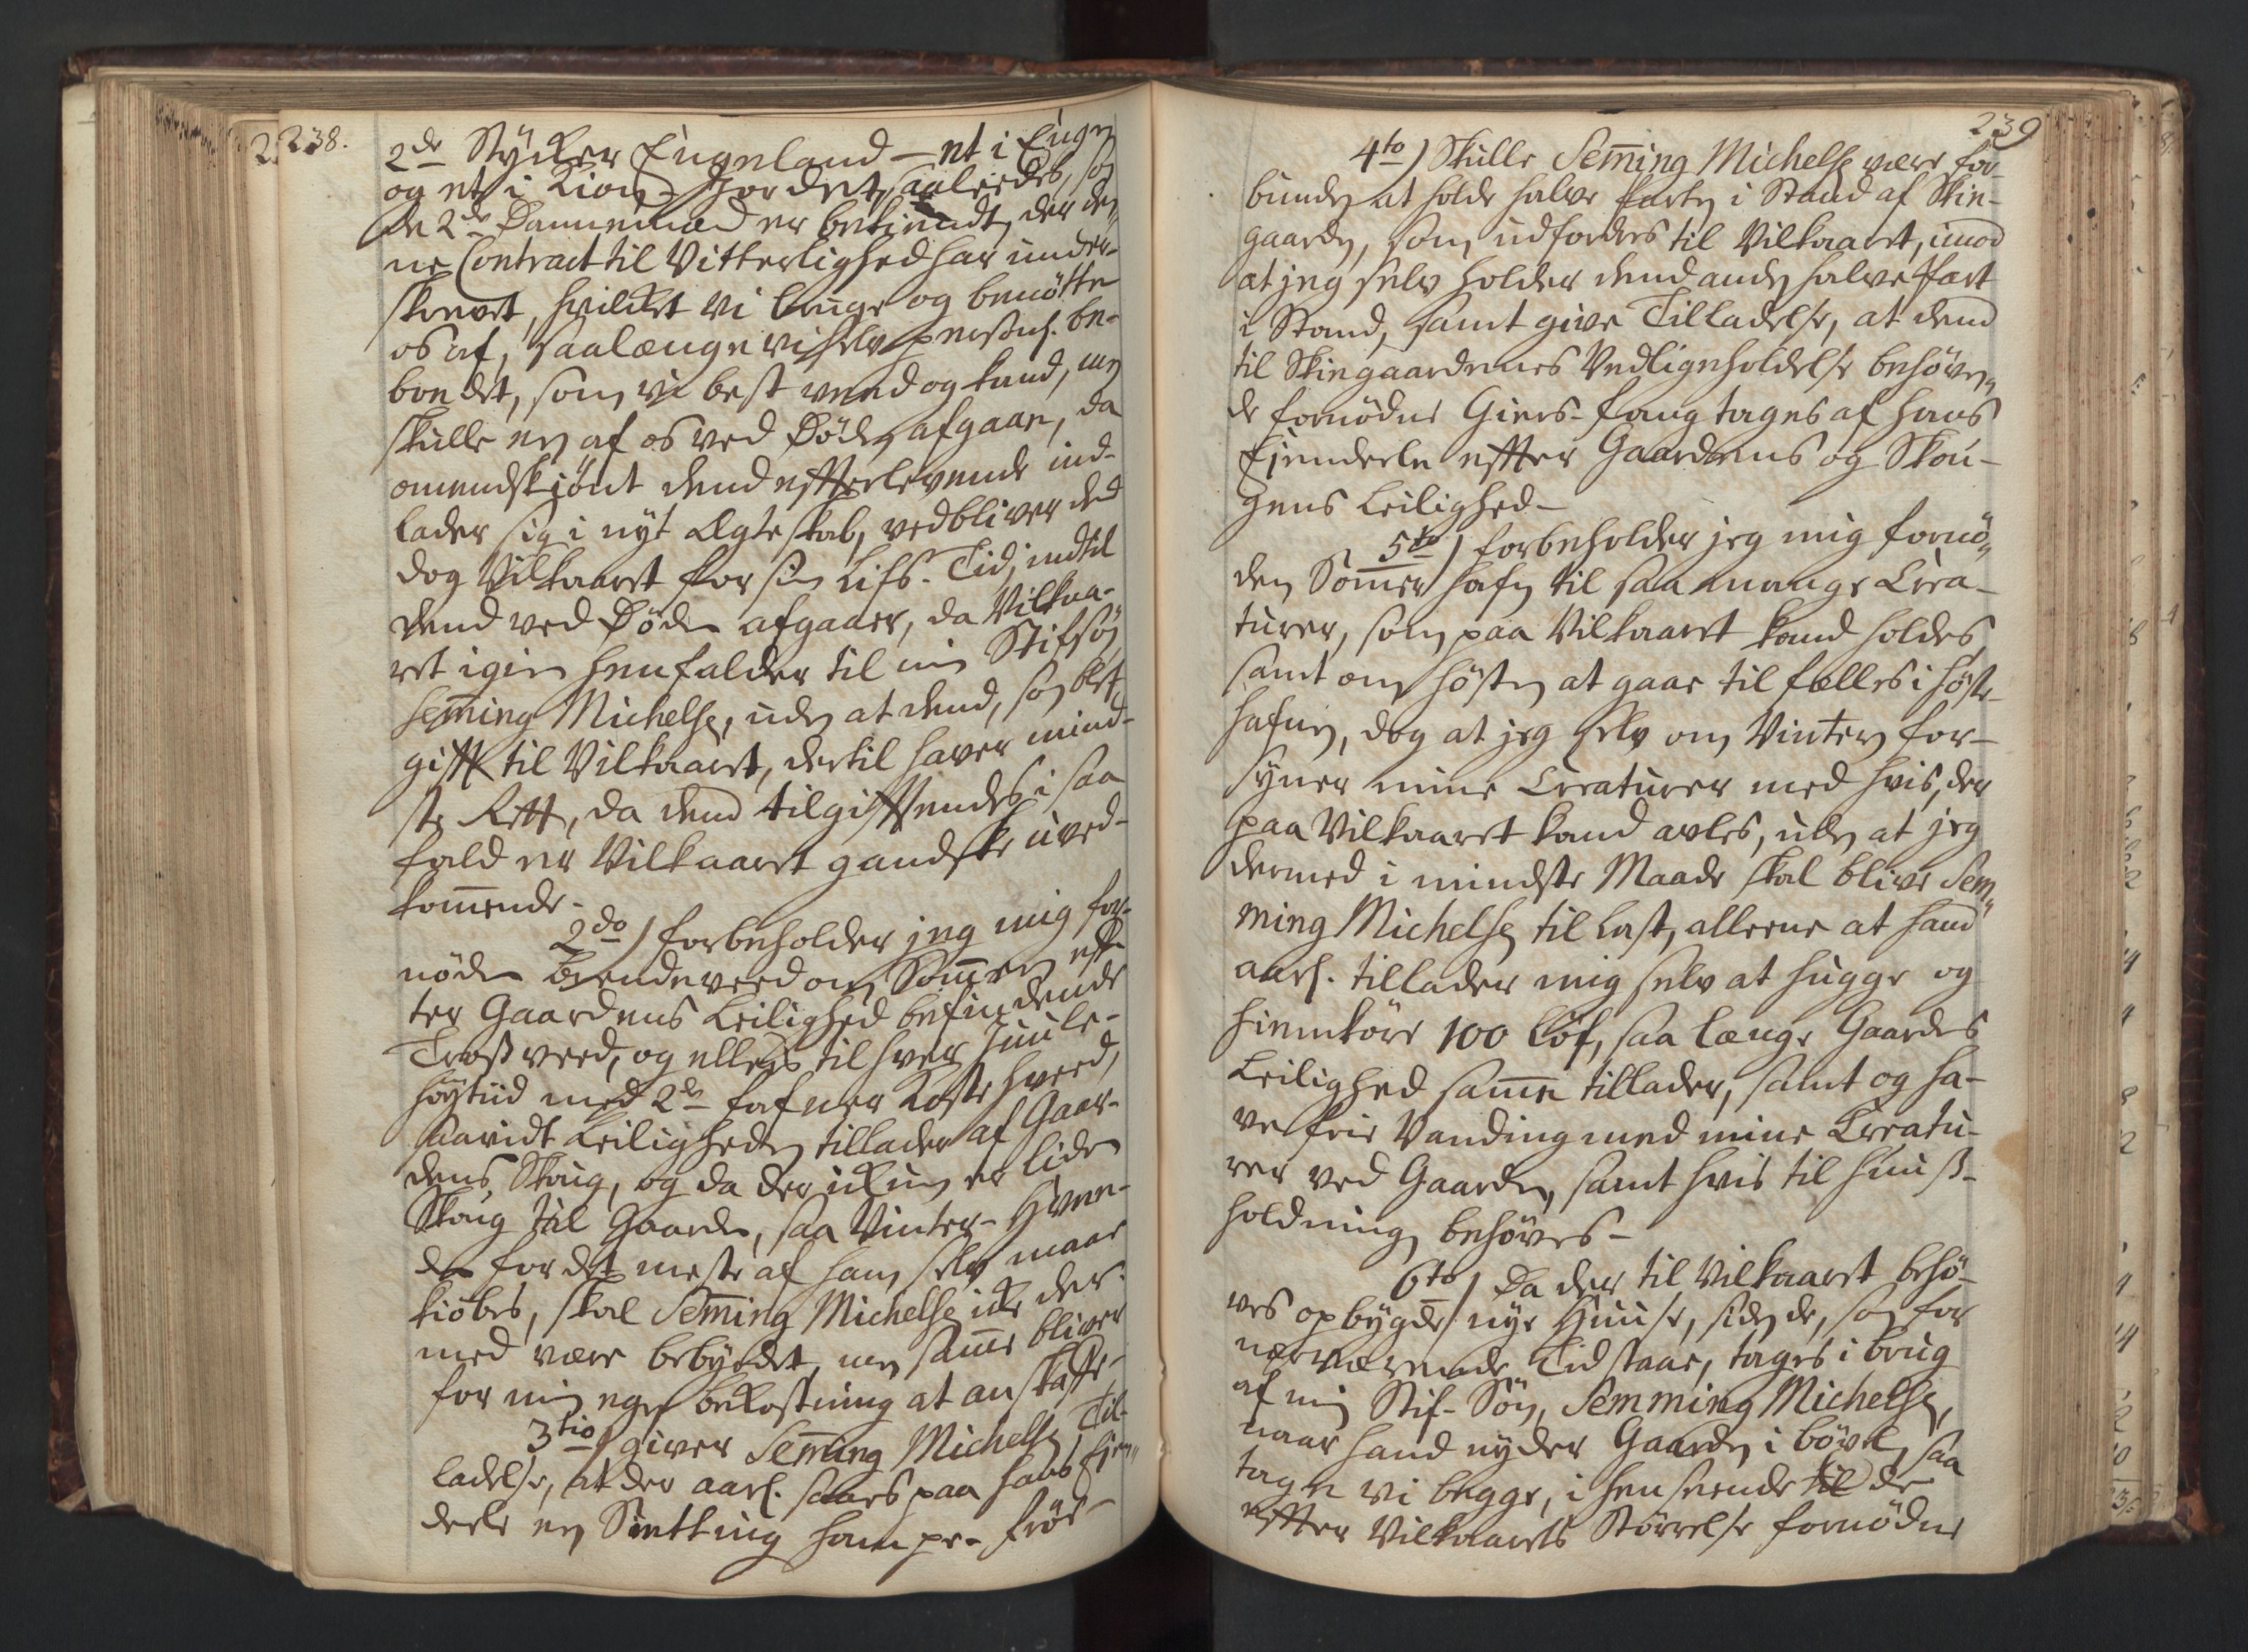 238.
2de Stÿcker Engeland – et i Enge
og et i Kion- Jordet, saaleedes, som
de 2de Dannemænd er bekiendt, der den-
ne Contract til Vitterlighed har under-
skrevet, hvilket vi bruge og benötte
os af, saalænge vi selv personl. be-
boe det, som vi best veed og kand, men
skulle en af os ved Döden afgaae, da
omendskiönt dend efterlevende ind-
lader sig i nÿt Ægteskab, vedbliver dend
dog Vilkaaret for sin Lifs- Tid, indtil
dend ved Döden afgaaer, da Vilkaa-
ret igien henfalder til min Stifsön
Semming Michelsen, uden at dend, som blef
gift til Vilkaaret, dertil haver mind-
ste Rett, da dend tilgiftendes i saa
fald er Vilkaaret gandske uved-
kommende-
2do) forbeholder jeg mig for-
nöden brendeveed om Sommeren eff-
ter Gaardens Leilighed befindende
Trosveed, og ellers til hver Juule-
höÿtiid med 2de fafner Kastehveed,
saavidt Leiligheden tillader af Gaar-
dens Skoug, og da der ikkun er liden
Skoug til Gaarden, saa Vinter- Hvee-
den for det meste af ham selv maae
kiöbes, skal Semming Michelsen icke der-
med være bebÿrdet, men samme bliver
for min egen bekostning at anskaffe-
3tio) giver Semming Michelsen Til-
ladelse, at der aarl. saaes paa hans Ejen-
deele en Setting hampe- fröe-
239
4to) Skulle Semming Michelsen være for-
bunden at holde halve Parten i Stand af Skie-
gaarden, som udfordres til Vilkaaret, imod
at jeg selv holder dend anden halve Part
i Stand, samt give Tilladelse, at dend
til Skiegaardenes Vedligeholdelse behöven-
de fornödne Giers- fang tages af hans
Ejendeele effter Gaardens og Skou-
gens Leilighed-
5to) forbeholder jeg mig fornö-
den Sommerhafn til saa mange Crea-
turer, som paa Vilkaaret kand holdes,
samt om Hösten at gaae til fælles i Höste-
hafnen, dog at jeg selv om Vinteren for-
sÿner mine Creaturer med hvis, der
paa Vilkaaret kand avles, uden at jeg
dermed i mindste Maade skal blive Sem-
ming Michelsen til Last, alleene at hand
aarl. tillader mig selv at hugge og
hiemköre 100 Löf, saa længe Gaardens
Leilighed samme tillader, samt og ha-
ve frie Vanding med mine Creatu-
rer ved Gaarden, samt hvis til Huus-
holdning behöves-
6to) Da der til Vilkaaret behö-
ves opbÿgde nÿe Huuse, siden de, som for
nærværende Tid staae, tages i brug
af min Stif- Sön, Semming Michelsen,
naar hand nÿder Gaarden i böxel, saa
tage vi begge, i henseende til de
effter Vilkaarets Störrelse fornödne